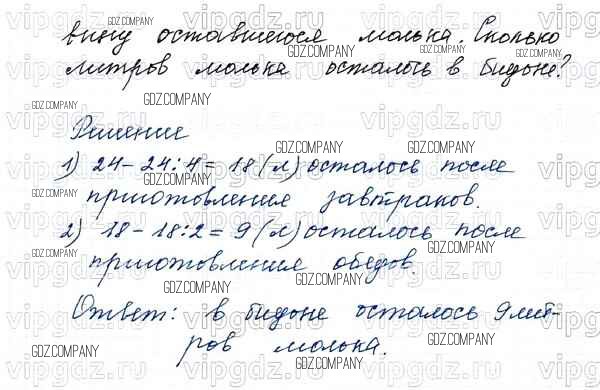 вину оставшегося молока. Сколько
литров молока осталось в бидоне?
Решение
1) 24 - 24 : 4 = 18 (л) осталось после
приготовления завтраков.
2) 18 - 18 : 2 = 9 (л) осталось после
приготовления обедов.
Ответ: в бидоне осталось 9 лит-
ров молока.